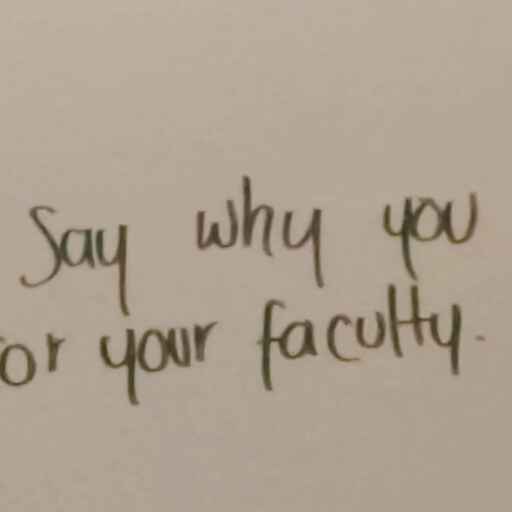 Say why you
or your faculty.